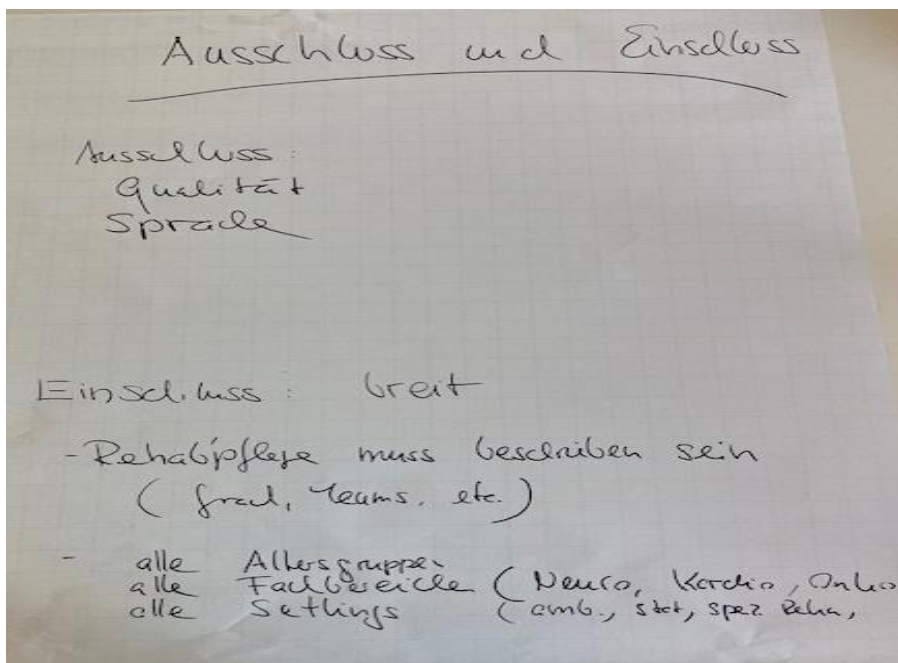 Ausschluss und Einschluss
Ausschluss:
Qualität
Sprache
Einschluss: breit
- Rehabpflege muss beschrieben sein
( , Teams, etc.)
- alle Altersgruppen
alle Fachbereiche (Neuro, Kardio, Onko
alle Settings (amb., stat, spez Reha,